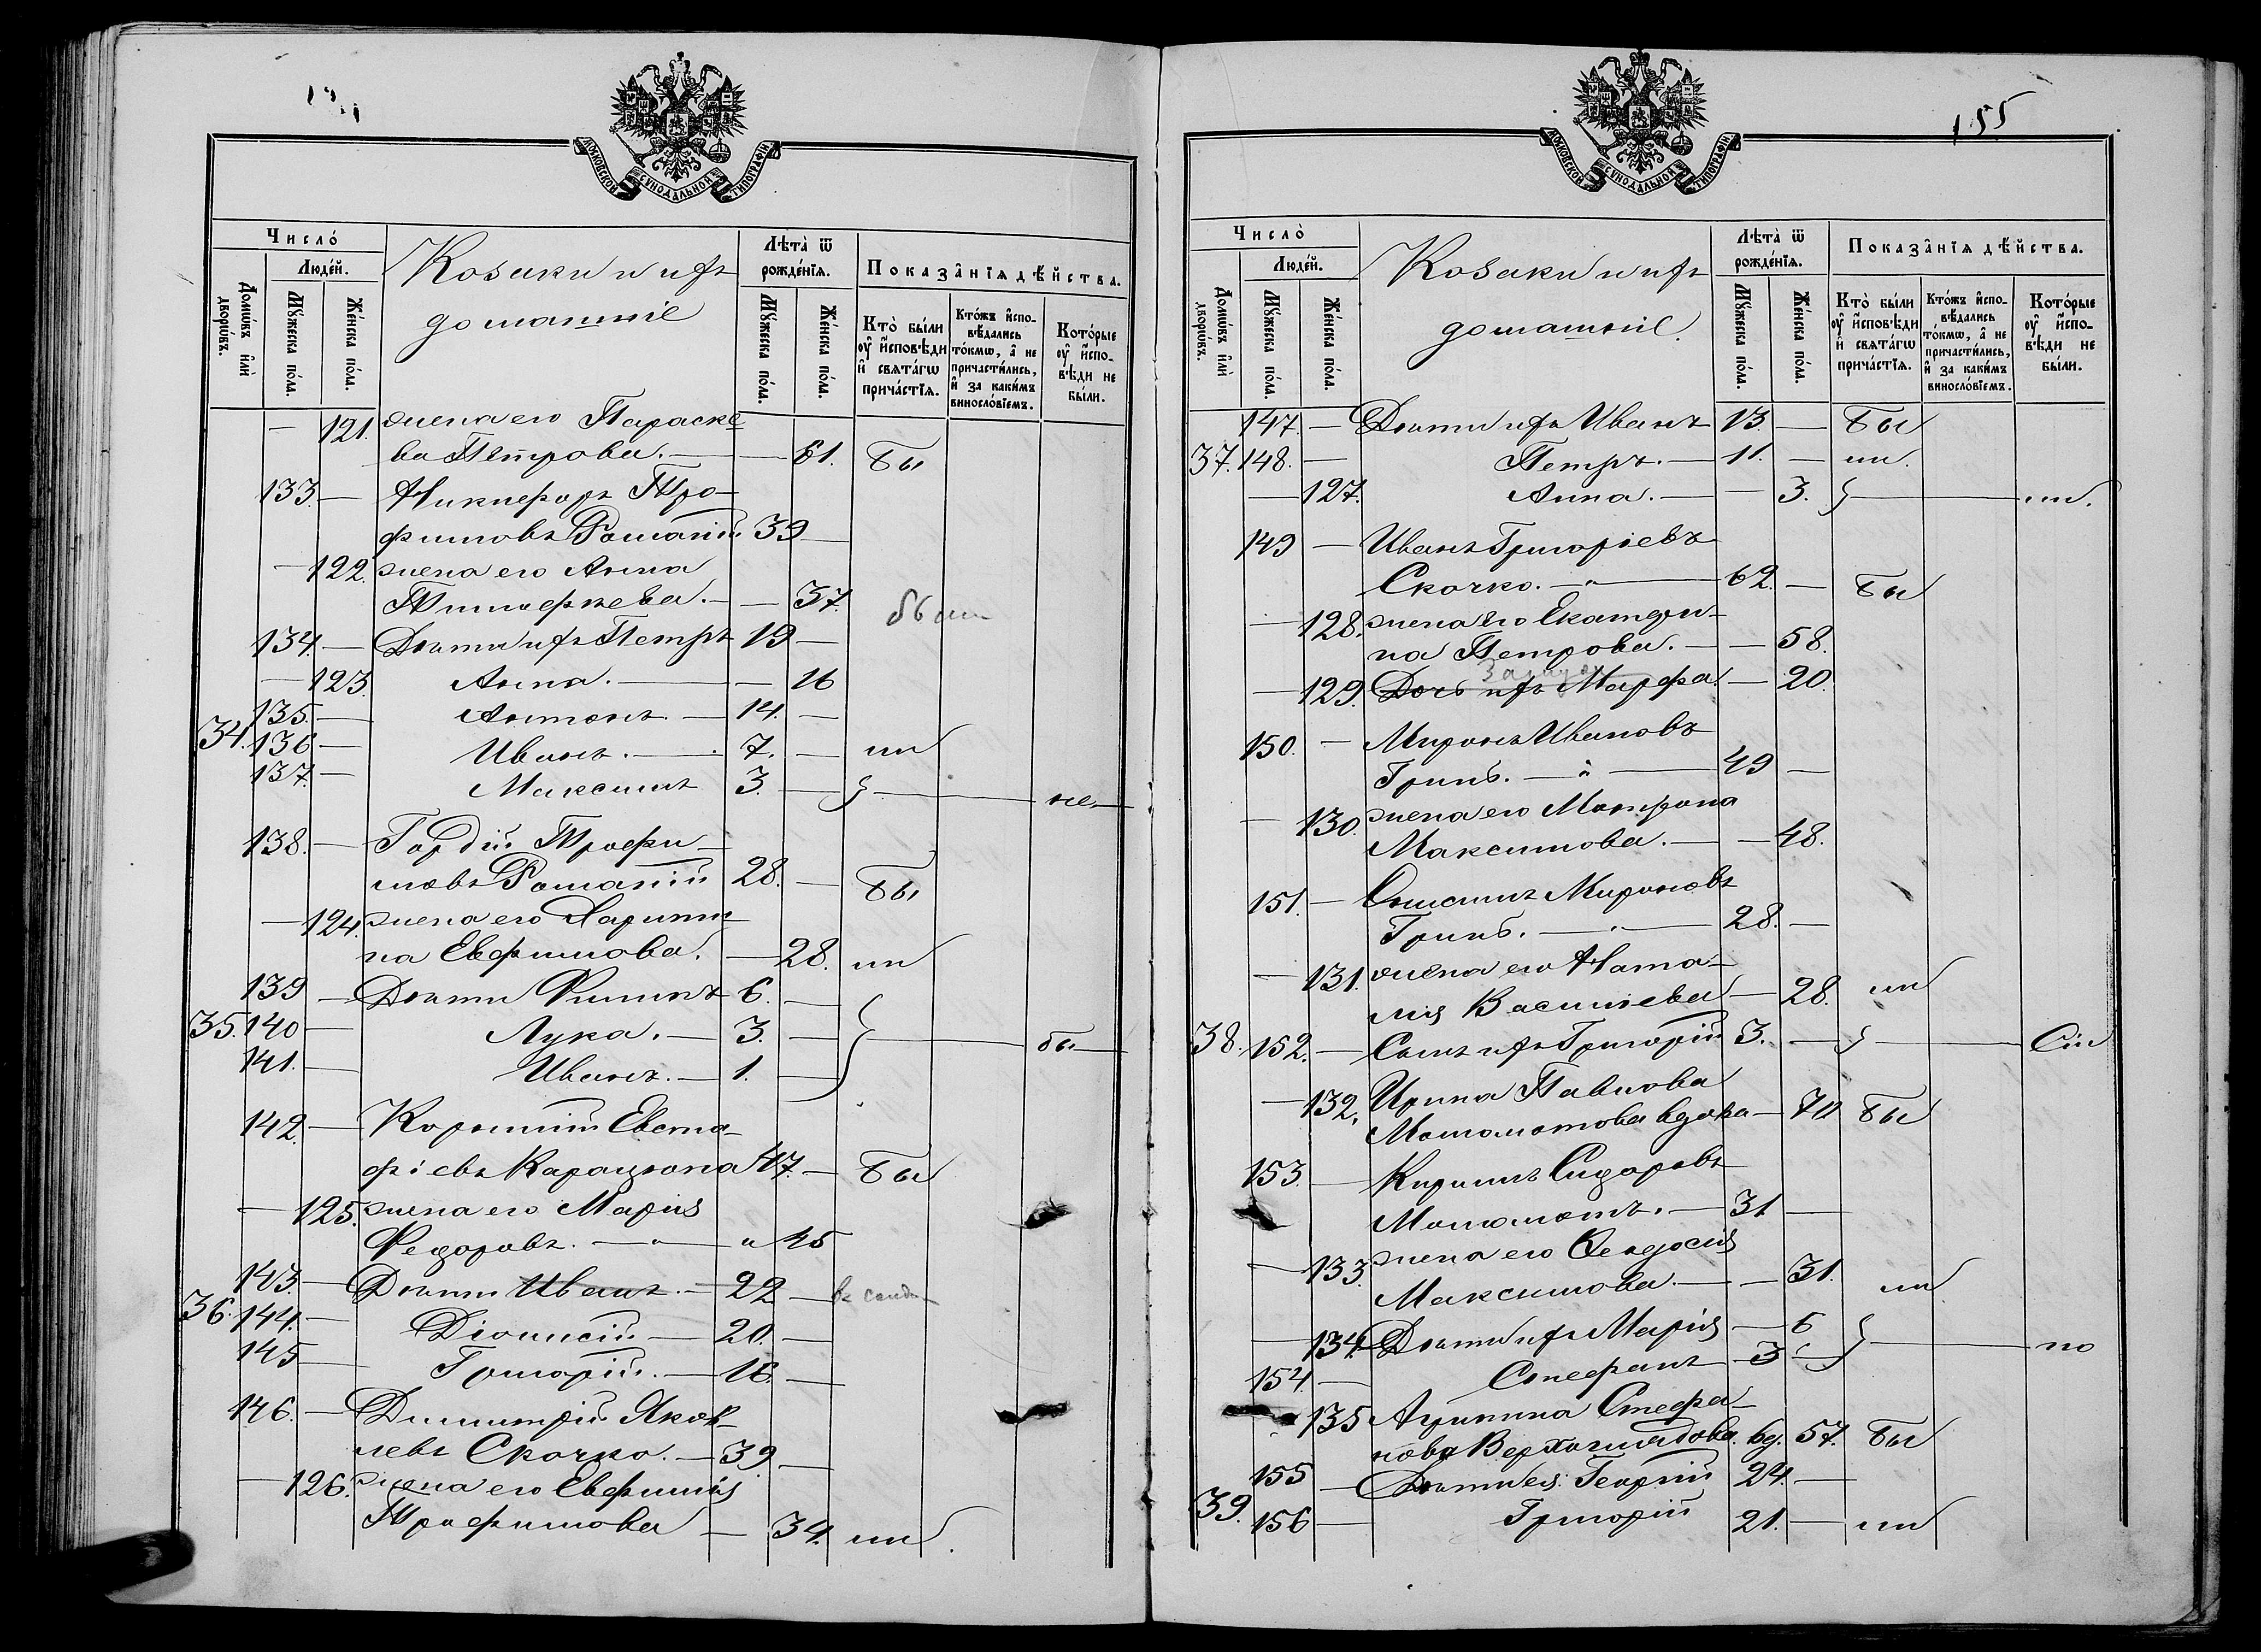 МОСКОВСКОЙ СѴНОДАЛЬНОЙ ТИПОГРАФІИ
Число̀
Людей.
Домовъ или дворовъ.
Мꙋжеска пола.
Женска пола.
Козаки и ихъ
домашніе
Лѣта ѿ рожденія.
Мꙋжеска пола.
Женска пола.
Показанія дѣйства.
Кто были ѹ исповѣди и святагѡ причастія.
Ктожъ исповѣдались токмѡ, а не причастились, и за какимъ винословіемъ.
Которые ѹ исповѣди не были.
— 121. жена его Параске-
ва Петрова. — — 61. бы
133. — Никифоръ Тро-
фимовъ Романій 39 —
— 122. жена его Анна
Тимофѣева. — — 37.
134. — Дѣти ихъ Петръ 19 —
— 123. Анна. — — 16
135. — Антонъ. — 14. —
34. 136 — Иванъ. — 7. — ли
137. — Максимъ 3. — не
138. — Гордій Трофи-
мовъ Романій 28. — бы
— 124. жена его Харити-
на Евфимова. — 28. ли
139 — Дѣти Филипъ 6. —
35. 140 — Лука. — 3. — бы
141. — Иванъ. — 1. —
142. — Корнилій Евста-
фіевъ Карацюпа 47. — бы
— 125. жена его Марія
Федоровъ. — " — " 45
143. — Дѣти Иванъ. — 22 —
36. 144. — Діонисій — 20. —
145 — Григорій. — 16. —
146. — Димитрій Яков-
левъ Скочко. — 39 —
— 126. жена его Евфимія
Трофимова — 34. ли
155
МОСКОВСКОЙ СѴНОДАЛЬНОЙ ТИПОГРАФІИ
Число̀
Людей.
Домовъ или дворовъ.
Мꙋжеска пола.
Женска пола.
Козаки и ихъ
домашніе.
Лѣта ѿ рожденія.
Мꙋжеска пола.
Женска пола.
Показанія дѣйства.
Кто были ѹ исповѣди и святагѡ причастія.
Ктожъ исповѣдались токмѡ, а не причастились, и за какимъ винословіемъ.
Которые ѹ исповѣди не были.
147. — Дѣти ихъ Иванъ 13 — бы
37. 148. — Петръ. — 11. — ли.
— 127. Анна. — — 3. ли.
149 — Иванъ Григоріевъ
Скочко. — " — 62. — бы
— 128. жена его Екатери-
на Петрова. — — 58.
— 129. Дочь ихъ Марфа. — 20.
150. — Миронъ Ивановъ
Гринь. — " — 49 —
— 130. жена его Матрона
Максимова. — — 48.
151. — Онисимъ Мироновъ
Гринь. — " — 28. —
— 131. жена его Ната-
лія Васильева — 28. ли
38. 152. — Сынъ ихъ Григорій 3. —
— 132. Ирина Павлова
Моломотова вдова — 70 бы
153. — Кирилъ Сидоровъ
Моломотъ. — 31 —
— 133. жена его Ѳеодосія
Максимова. — — 31. ли
— 134. Дѣти ихъ Марія — 6
154. — Стефанъ — 3 — ло
— 135 Агрипина Стефа-
нова Верхоглядова. вд. 57. бы
155 — Дѣти ея: Георгій 24. —
39. 156 — Григорій 21. — ли